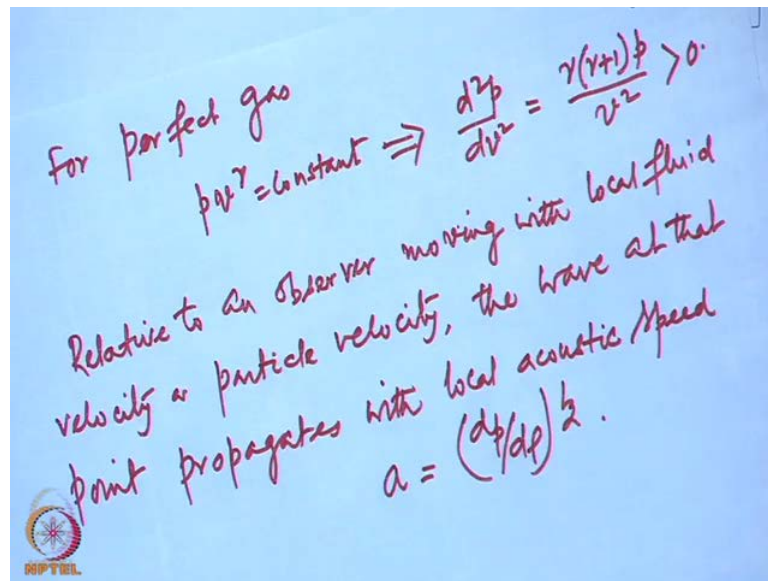 For perfect gas
pv^γ = constant ⇒ d²p/dv² = γ(γ+1)p/v² > 0.
Relative to an observer moving with local fluid
velocity or particle velocity, the wave at that
point propagates with local acoustic speed
a = (dp/dρ)^½.
NPTEL